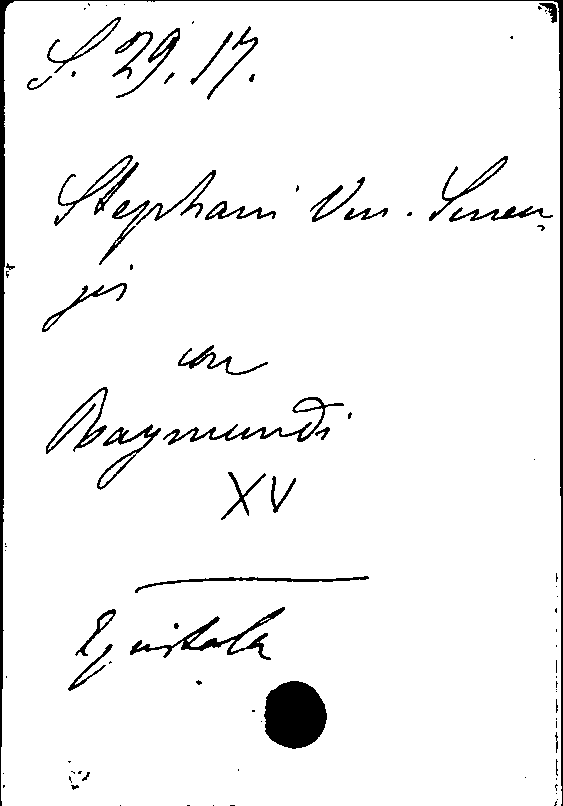 S. 29. 17.
Stephani Ven. Senen-
sis
Raymundi
XV
Epistola